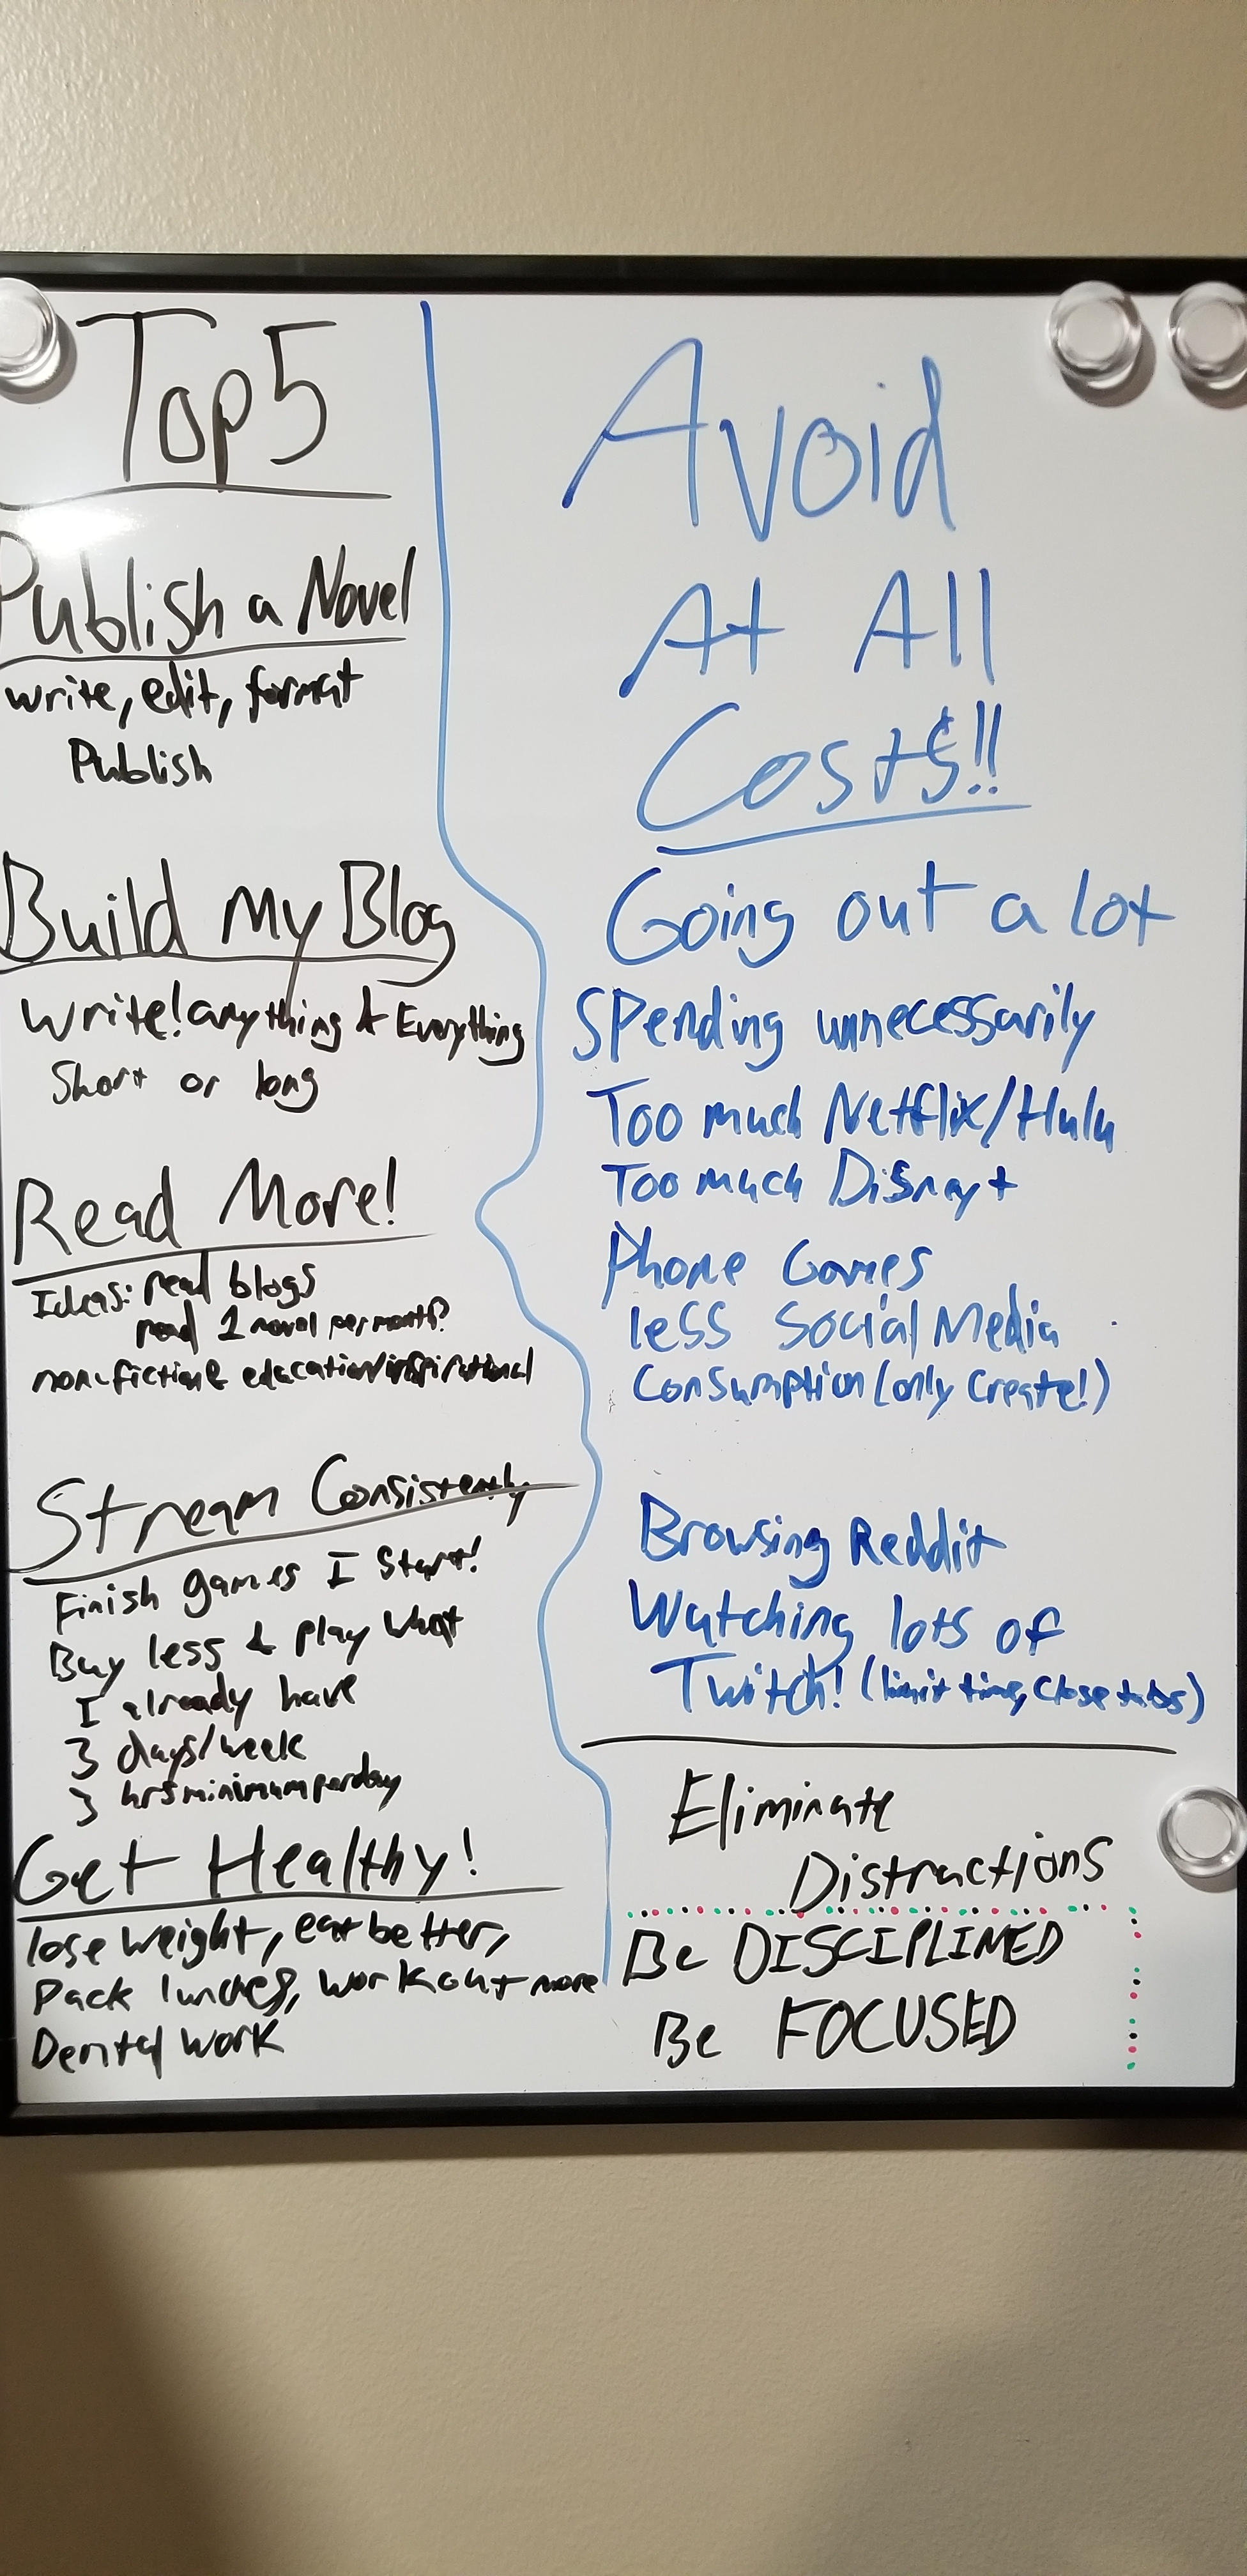 Top 5
Publish a Novel
write, edit, format
Publish
Build My Blog
Write! anything & Everything
Short or long
Read More!
Ideas: read blogs
read 1 novel per month?
non-fiction & education/inspirational
Stream Consistently
Finish games I Start!
Buy less & play what
I already have
3 days/week
3 hrs minimum per day
Get Healthy!
lose weight, eat better,
Pack lunches, workout more
Dental work
Avoid
At All
Costs!!
Going out a lot
Spending unnecessarily
Too much Netflix/Hulu
Too much Disney+
Phone Games
less Social Media
Consumption (only Create!)
Browsing Reddit
Watching lots of
Twitch! (limit time, close tabs)
Eliminate
Distractions
Be DISCIPLINED
Be FOCUSED